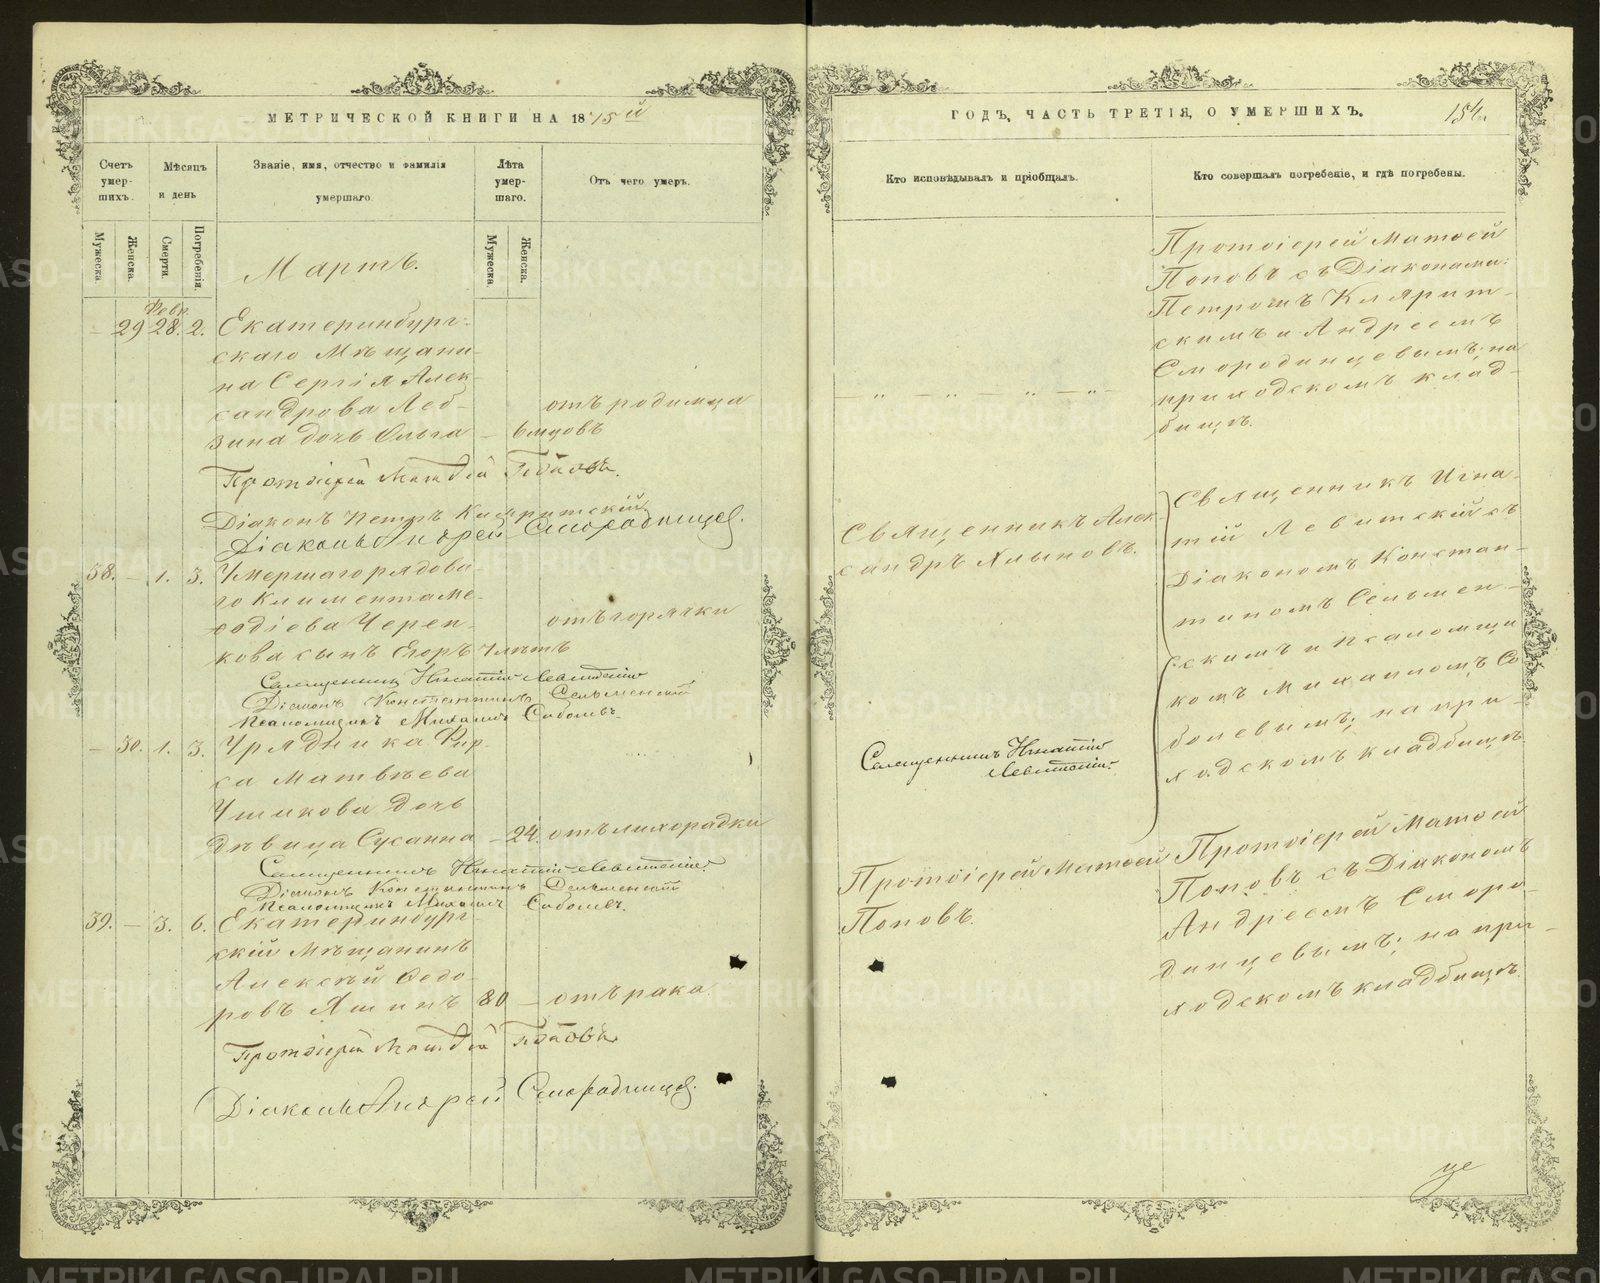 МЕТРИЧЕСКОЙ КНИГИ НА 1875й
Счетъ умер-шихъ.
Мѣсяцъ и день
Званіе, имя, отчество и фамилія умершаго.
Лѣта умер-шаго.
Отъ чего умеръ.
Мужеска.
Женска.
Смерти.
Погребенія.
Мужеска.
Женска.
Мартъ.
Февр.
29 28. 2. Екатеринбург-
скаго Мѣщани-
на Сергія Алек-
сандрова Леб-
отъ родимца
зина дочь Ольга – 6 мцовъ
Протоіерей Матѳей Поповъ.
Діаконъ Петръ Кларитскій
Діаконъ Андрей Смородинцев.
38. – 1. 3. Умершаго рядова-
го Климента Ме-
ѳодіева Черен-
отъ горячки
кова сынъ Егоръ 7 лѣтъ
Священникъ Игнатій Левитскій
Діаконъ Константинъ Сельменскій
Псаломщикъ Михаилъ Соболевъ.
– 30. 1. 3. Урядника Фир-
са Матвѣева
Ушкова дочь
Дѣвица Сусанна – 24. отъ лихорадки
Священникъ Игнатій Левитскій.
Діаконъ Константинъ Сельменскій
Псаломщикъ Михаилъ Соболевъ.
39. – 3. 6. Екатеринбург-
скій Мѣщанинъ
Алексѣй Ѳедо-
ровъ Яшинъ 80 – отъ рака
Протоіерей Матѳей Поповъ
Діаконъ Андрей Смородинцев.
ГОДЪ, ЧАСТЬ ТРЕТІЯ, О УМЕРШИХЪ.
Кто исповѣдывалъ и пріобщалъ.
Кто совершалъ погребеніе, и гдѣ погребены.
Протоіерей Матѳей
Поповъ съ Діаконами:
Петромъ Кларит-
скимъ и Андреемъ
Смородинцевымъ; на
приходскомъ клад-
бищѣ.
Священникъ Алек-
сандръ Хлыновъ.
Священникъ Игна-
тій Левитскій съ
Діакономъ Констан-
тиномъ Сельмен-
скимъ и псаломщи
комъ Михаиломъ Со
болевымъ; на при-
ходскомъ кладбищѣ
Священникъ Игнатій
Левитскій.
Протоіерей Матѳей
Поповъ.
Протоіерей Матѳей
Поповъ съ Діакономъ
Андреемъ Сморо-
динцевымъ; на при-
ходскомъ кладбищѣ.
це
METRIKI.GASO-URAL.RU